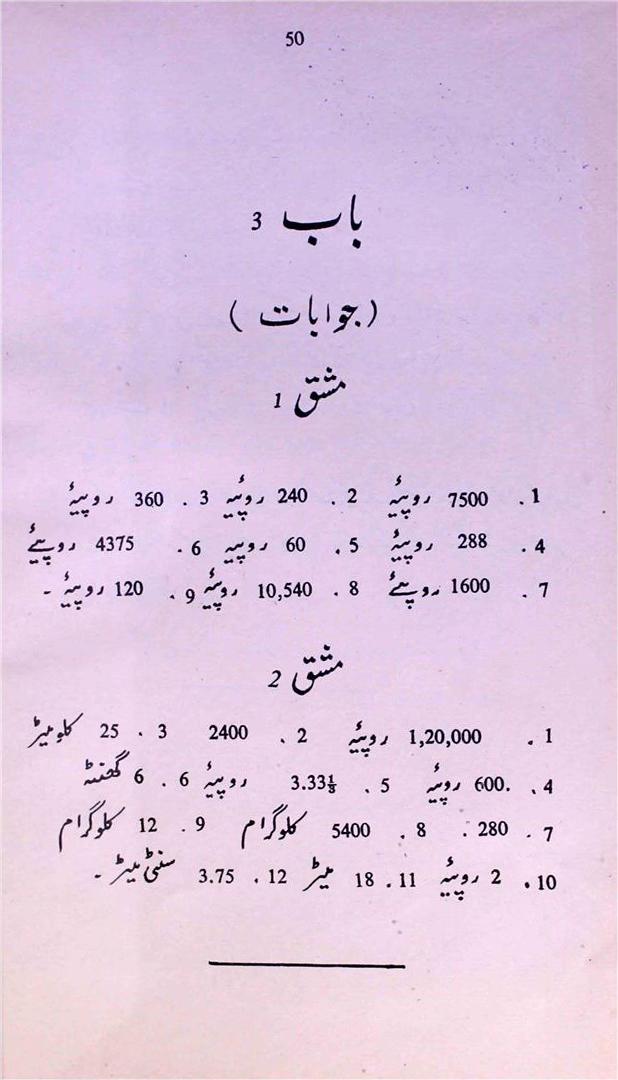 50
باب 3
(جوابات)
مشق 1
1. 7500 روپیۓ 2. 240 روپیۓ 3. 360 روپیۓ
4. 288 روپیۓ 5. 60 روپیہ 6. 4375 روپیۓ
7. 1600 روپیۓ 8. 10,540 روپیۓ 9. 120 روپیۓ ۔
مشق 2
1. 1,20,000 روپیۓ 2. 2400 3. 25 کلومیٹر
4. 600. روپیۓ 5. 3.33⅓ روپیۓ 6. 6 گھنٹہ
7. 280. 8. 5400 کلوگرام 9. 12 کلوگرام
10. 2 روپیۓ 11. 18 میٹر 12. 3.75 سنٹی میٹر ۔